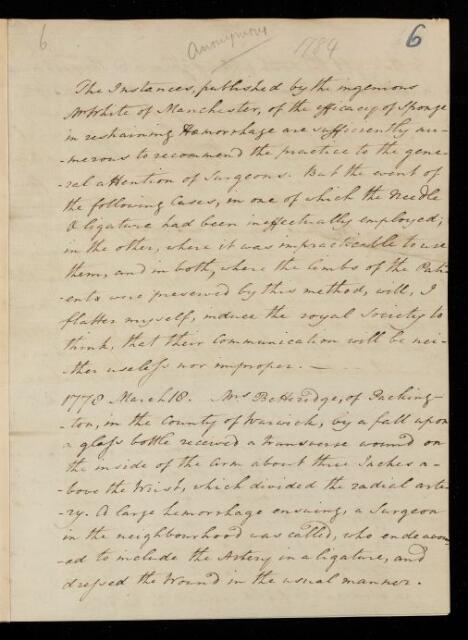 6
Anonymous
1784
6
The Instances, published by the ingenious
Mr White of Manchester, of the efficacy of Sponge
in restraining Hamorrhage are sufficiently nu-
-merous to recommend the practice to the gene-
-ral attention of Surgeons. But the event of
the following Cases, in one of which the Needle
& ligature had been ineffectually employed;
in the other, where it was impracticable to use
them, and in both, where the limbs of the Pati-
ents were preserved by this method, will, I
flatter myself, induce the royal Society to
think, that their Communication will be nei-
-ther useless nor improper. —
1778 March 18. Mrs Betteridge, of Packing-
-ton, in the County of Warwick, by a fall upon
a glass bottle received a transverse wound on
the inside of the Arm about three Inches a-
-bove the Wrist, which divided the radial arte-
-ry. A large hemorrhage ensuing, a Surgeon
in the neighbourhood was called, who endeavour-
-ed to include the Artery in a ligature, and
dressed the Wound in the usual manner.